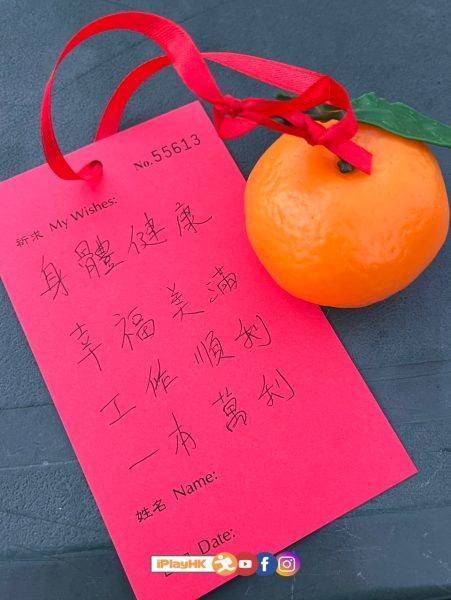 No.55613
祈求 My Wishes:
身體健康
幸福美滿
工作順利
一本萬利
姓名 Name:
Date:
iPlayHK